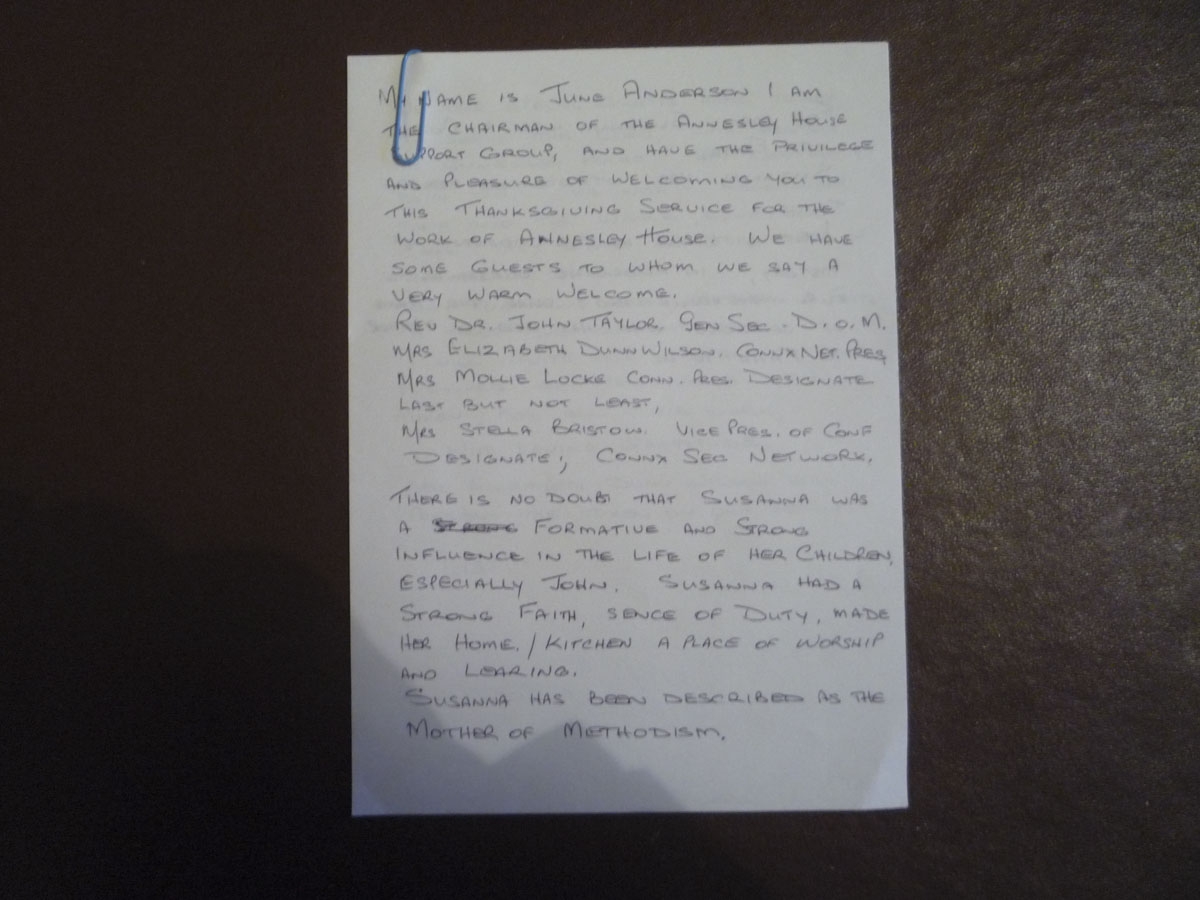 MY NAME IS JUNE ANDERSON I AM
THE CHAIRMAN OF THE ANNESLEY HOUSE
SUPPORT GROUP, AND HAVE THE PRIVILEGE
AND PLEASURE OF WELCOMING YOU TO
THIS THANKSGIVING SERVICE FOR THE
WORK OF ANNESLEY HOUSE. WE HAVE
SOME GUESTS TO WHOM WE SAY A
VERY WARM WELCOME.
REV DR. JOHN TAYLOR GEN SEC. D.O.M.
MRS ELIZABETH DUNN WILSON. CONNX NET. PRES
MRS MOLLIE LOCKE CONN. PRES. DESIGNATE
LAST BUT NOT LEAST,
MRS STELLA BRISTOW. VICE PRES. OF CONF
DESIGNATE; CONNX SEC NETWORK.
THERE IS NO DOUBT THAT SUSANNA WAS
A STRONG FORMATIVE AND STRONG
INFLUENCE IN THE LIFE OF HER CHILDREN,
ESPECIALLY JOHN. SUSANNA HAD A
STRONG FAITH, SENCE OF DUTY, MADE
HER HOME./KITCHEN A PLACE OF WORSHIP
AND LEARING.
SUSANNA HAS BEEN DESCRIBED AS THE
MOTHER OF METHODISM.